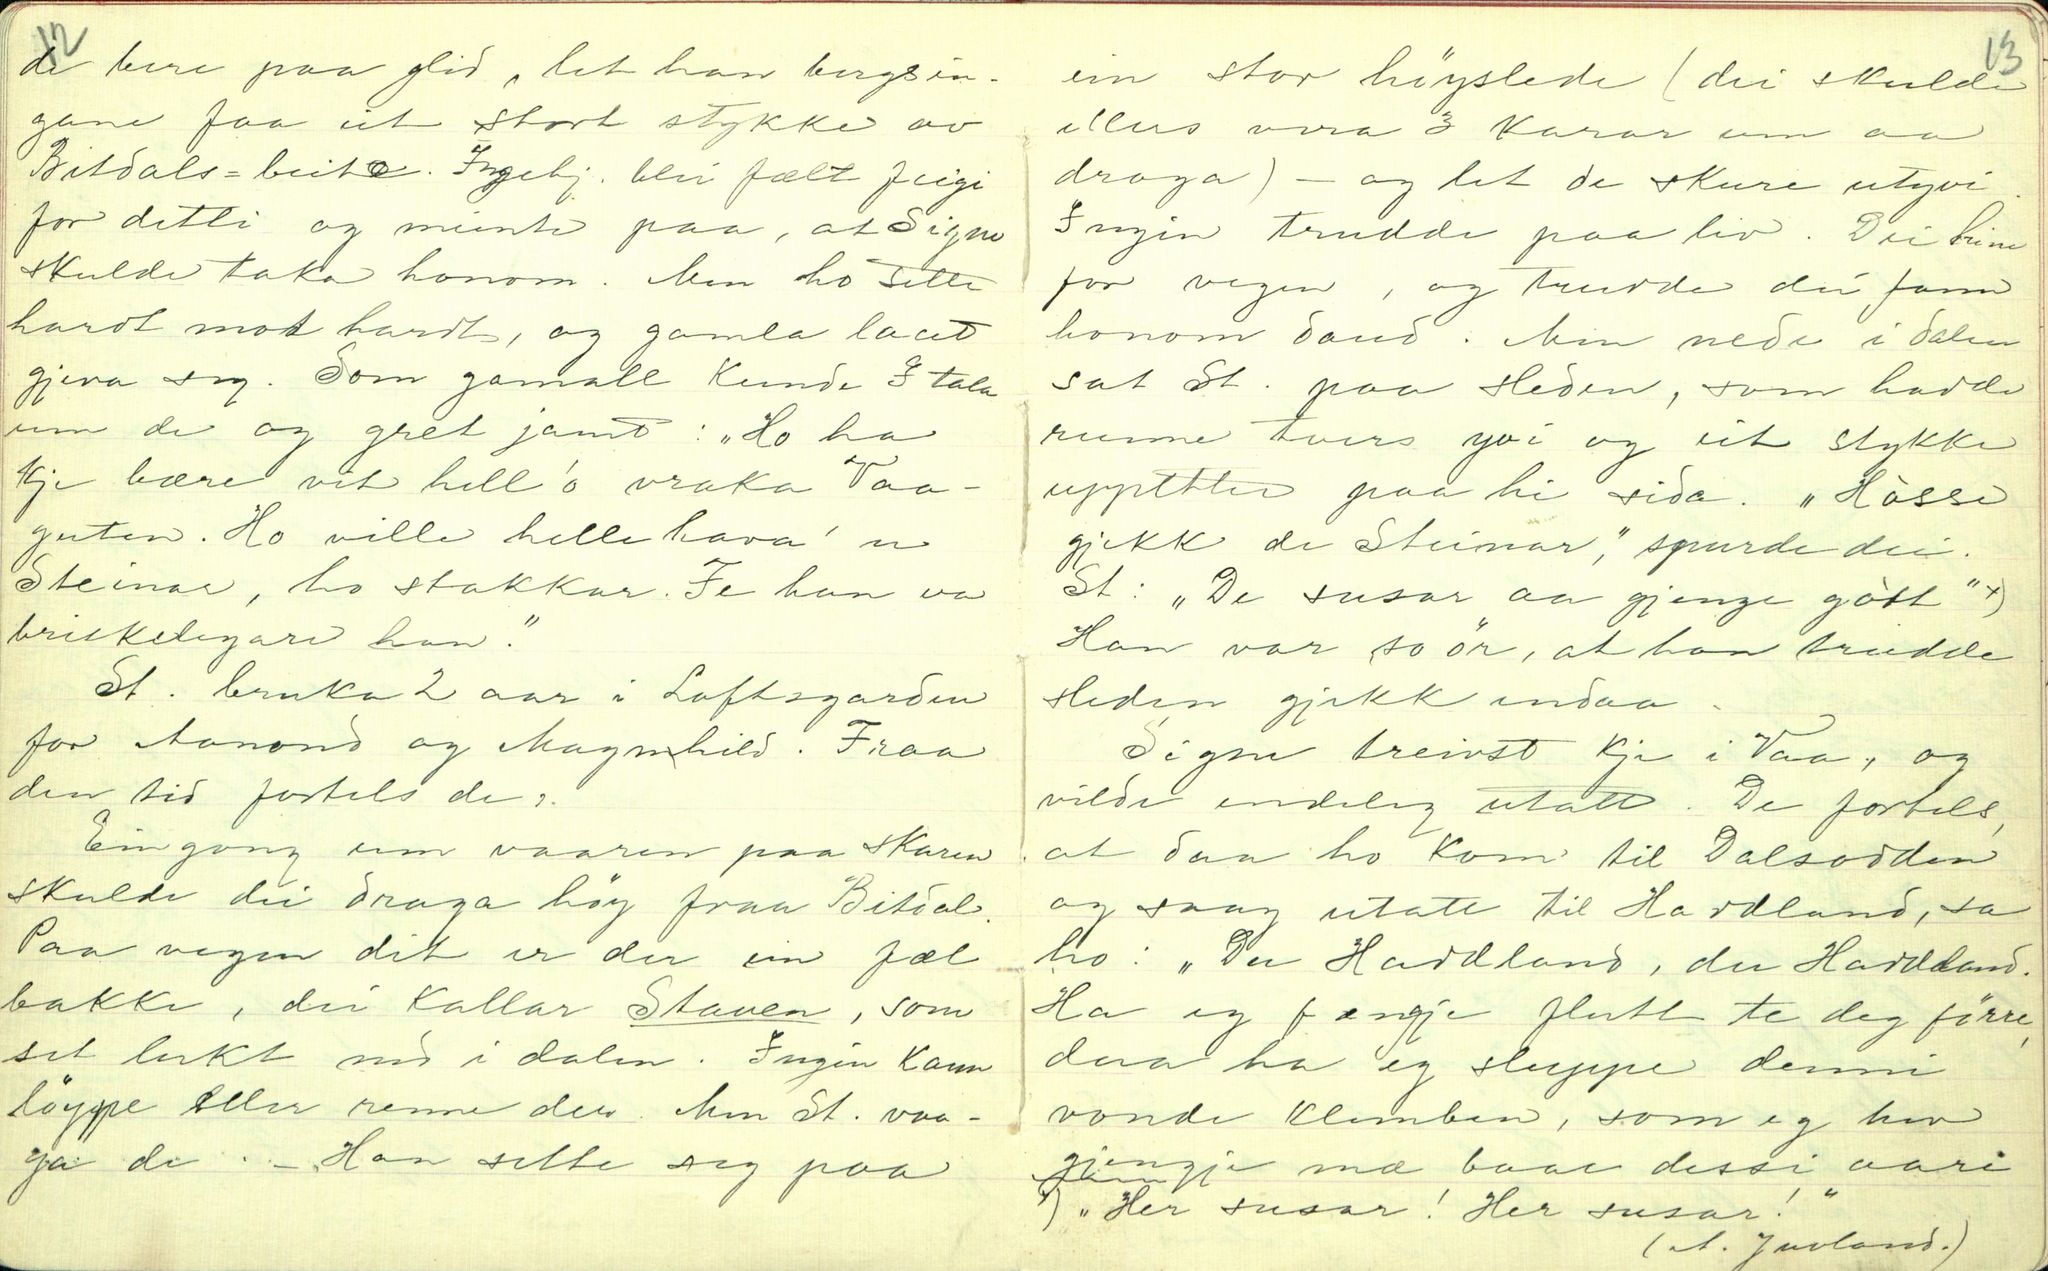 12
de bere paa glid, let han bergsin-
gane faa eit stort stykke av
Bitdals-beite. Ingebj. blei fælt feigi
for detti og meinte paa, at Signe
skulde taka honom. Men ho sette
hardt mot hardt, og gamla laut
gjeva seg. Som gamall kunde I tala
um de og gret jamt: "Ho ha
kje bære vit hell ó vraka Vaa-
guten. Ho ville helle hava' n
Steinar, ho stakkar. Fe han va
briskelegare han."
St. bruka 2 aar i Loftsgarden
for Aanond og Magnhild. Fraa
den tid fortels de:
Ein gong um vaaren paa skaren
skulde dei draga höy fraa Bitdal.
Paa vegen dit er der ein fæl
bakke, dei kallar Staven, som
set lukt ned i dalen. Ingin kann
löyppe eller renne der. Men St. vaa-
ga de. - Han sette seg paa
13
ein stor höyslede (dei skulde
elles vera 3 karar um aa
draga) - og let de skure utyvi.
Ingin trudde paa liv. Dei hine
for vegen, og trudde dei fann
honom daud. Men nede i dalen
sat St. paa sleden, som hadde
runne tvers yvi og eit stykke
uppetter paa hi sida. "Hòsse
gjekk de Steinar," spurde dei.
St: "De susar aa gjenge gòtt" x)
Han var so ör, at han trudde
sleden gjekk endaa.
Signe treivst kje i Vaa, og
vilde endeleg utatt. De fortels,
at daa ho kom til Dalsodden
og saag utatt til Haddland, sa
ho: "Du Haddland, du Haddland.
Ha eg fengje flutt te deg förre,
daa ha eg sluppe denni
vonde klemben, som eg hev
gjengje mæ baae dessi aari
x) "Her susar! Her susar!"
(A. Juvland.)